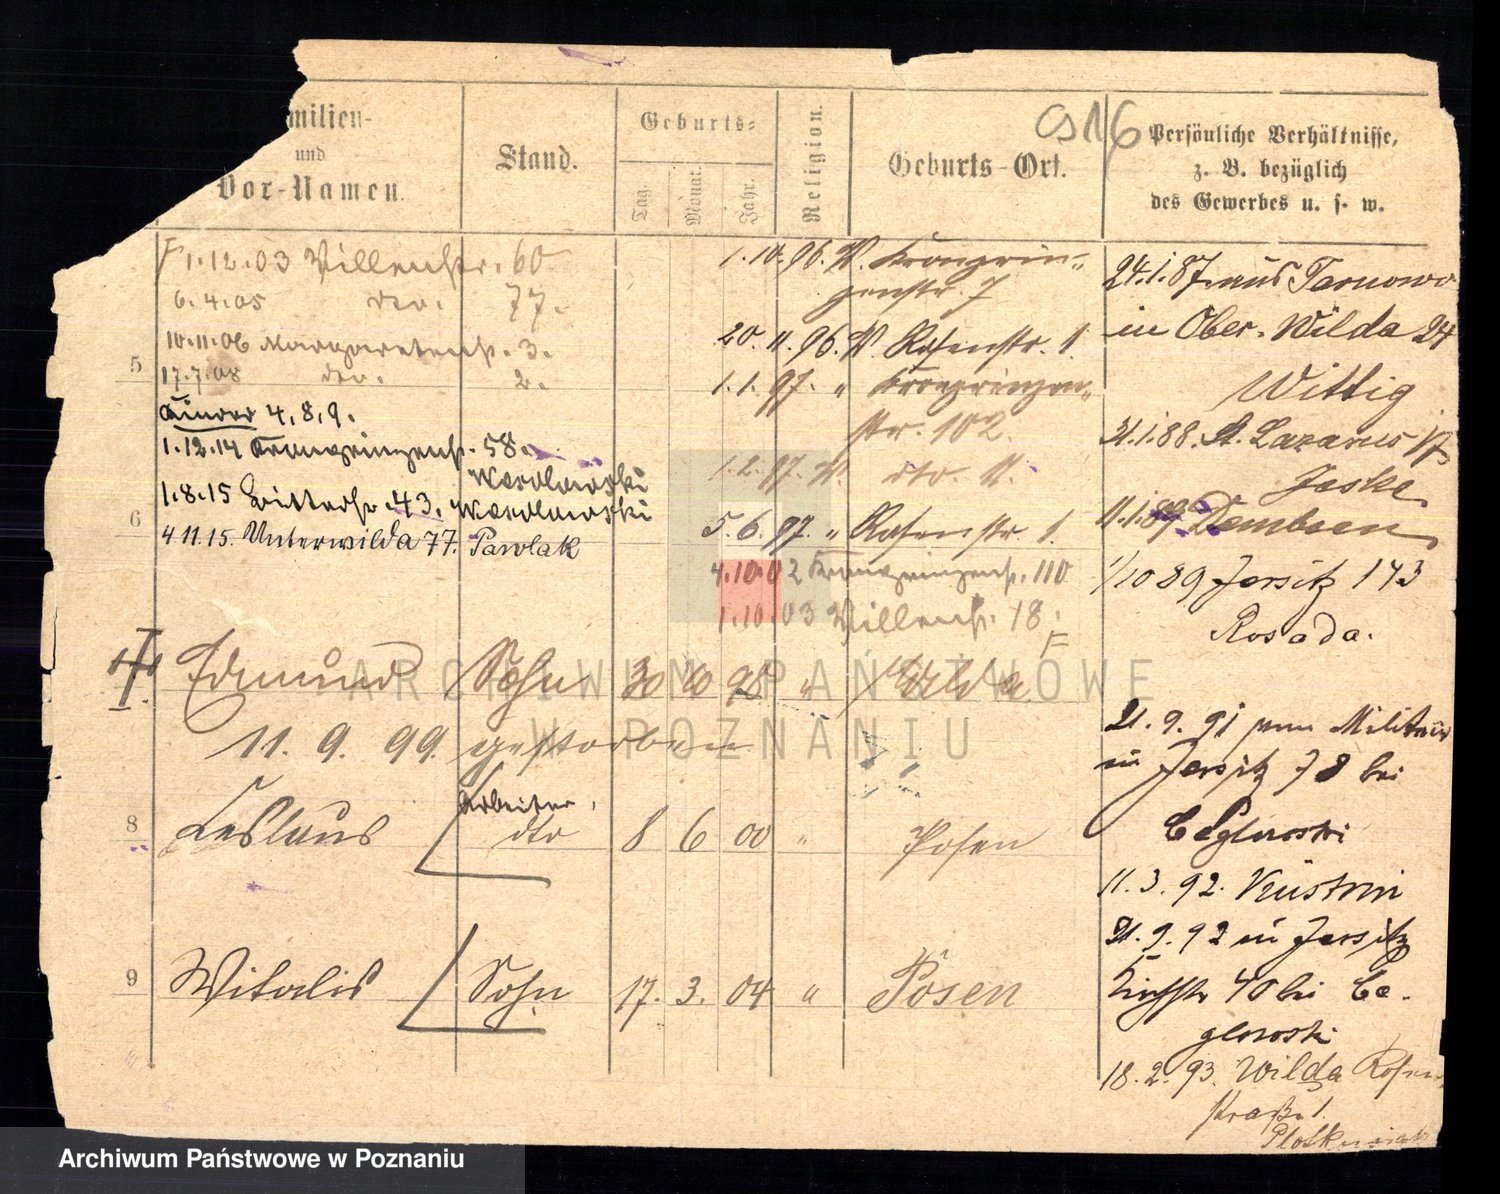 milien-
und
Vor-Namen.
Stand.
Geburts-
Tag.
Monat.
Jahr.
Religion.
Geburts-Ort.
916
Persönliche Verhältnisse,
z. B. bezüglich
des Gewerbes u. s. w.
1.12.03 Villenstr. 60
6.4.05 dto. 77.
10.11.06 Margaretenst. 3.
5
17.7.08 dto. 2.
Kinder 4, 8, 9.
1.12.14 Kronprinzenst. 58.
Wardawski
1.8.15 Bitterstr. 43. Wardawski
6
4 11.15. Unterwilda 77. Pawlak
1.10.96. W. Kronprin-
zenstr. 7
20.11.96. W. Rosenstr. 1.
1.1.97. " Kronprinzen-
str. 102.
1.2.97. W. dto. 11.
5.6.97. " Rosenstr. 1.
4.10.02 Kronprinzenst. 110
1.10.03 Villenst. 18.
Edmund Sohn 30 10 98 " Wilda
11. 9. 99. gestorben
Arbeiter
8 Ceslaus dto 8 6 00 " Posen
9 Witalis Sohn 17. 3. 04 " Posen
24.1.87. aus Tarnowo
in Ober-Wilda 24
Wittig
31.1.88. St. Lazarus
Jaske
11.1.89 Dembsen
1/10 89 Jersitz 173
Rosada.
21.9.91 zum Militair
in Jersitz 78 bei
Ceglowski
11.3.92. Küstrin
21.9.92 in Jersitz
Kirchstr 40 bei Ce-
glowski
18.2.93. Wilda Rosen
straße 1.
ARCHIWUM PAŃSTWOWE
W POZNANIU
Archiwum Państwowe w Poznaniu